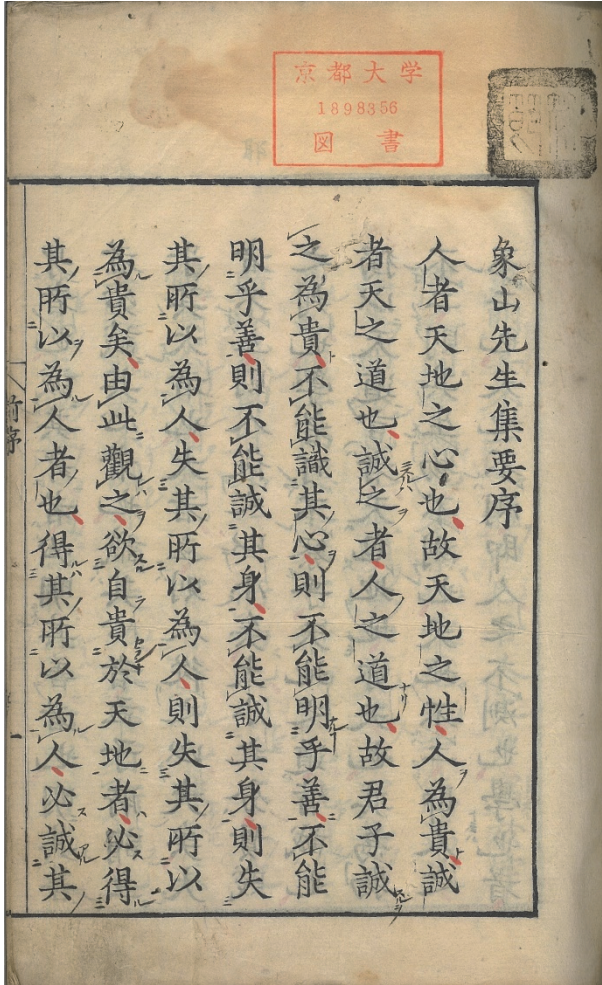 京都大学
1898356
図書
象山先生集要序
人者天地之心也故天地之性人為貴誠
者天之道也誠之者人之道也故君子誠
之為貴不能識其心則不能明乎善不能
明乎善則不能誠其身不能誠其身則失
其所以為人失其所以為人則失其所以
為貴矣由此觀之欲自貴於天地者必得
其所以為人者也得其所以為人必誠其
前序
一